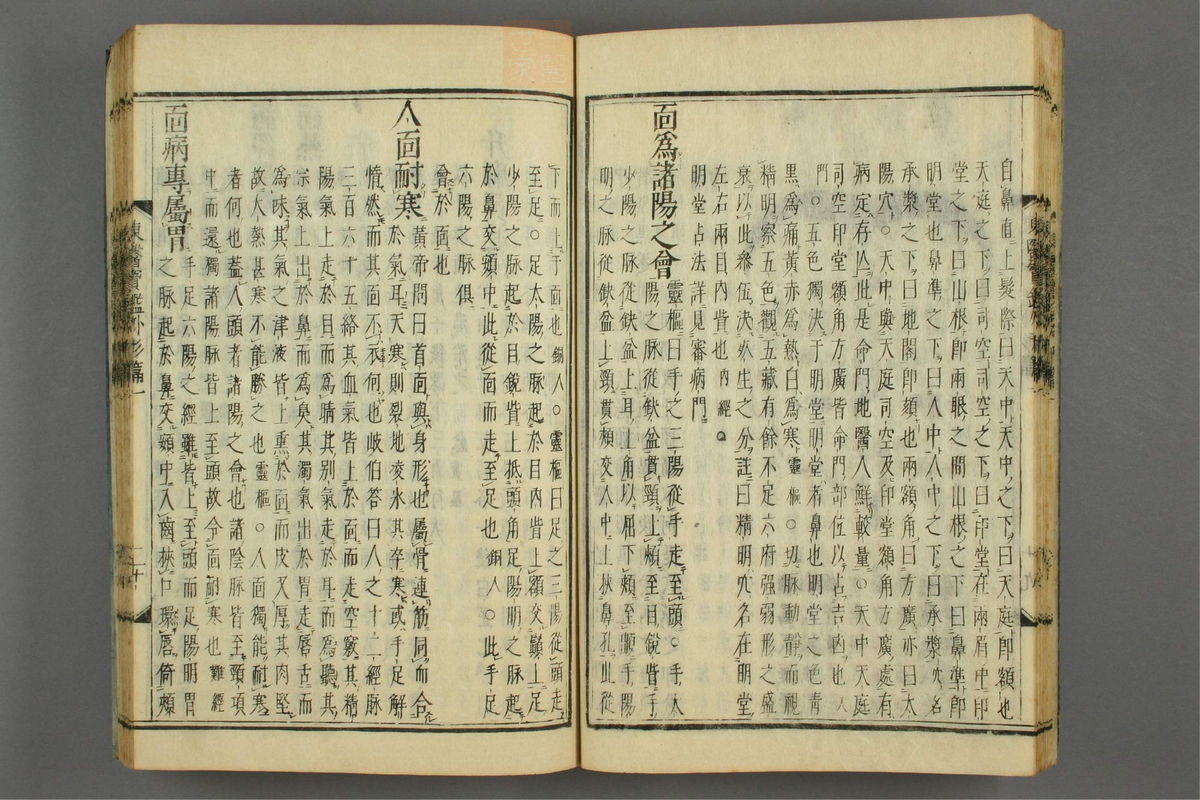 自鼻直上髮際曰天中天中之下曰天庭即額也
天庭之下曰司空司空之下曰印堂在兩眉中印
堂之下曰山根即兩眼之間山根之下曰鼻準即
明堂也鼻準之下曰人中人中之下曰承漿穴名
承漿之下曰地閣即頦也兩額角曰方廣亦曰太
陽穴○天中與天庭司空及印堂額角方廣處有
病定存亡此是命門地醫人鮮較量○天中天庭
司空印堂額角方廣皆命門部位以占吉凶也入
門○五色獨決于明堂明堂者鼻也明堂之色青
黑為痛黃赤為熱白為寒靈樞○切脉動靜而視
精明察五色觀五藏有餘不足六府强弱形之盛
衰以此參伍決死生之分註曰精明穴名在明堂
左右兩目內眥也內經○
明堂占法詳見審病門
面為諸陽之會靈樞曰手之三陽從手走至頭○手太
陽之脉從缺盆貫頸上頰至目銳眥手
少陽之脉從缺盆上耳上角以屈下頰至䪼手陽
明之脉從缺盆上頸貫頰交人中上挾鼻孔此從
下而上於面也銅人○靈樞曰足之三陽從頭走
至足○足太陽之脉起於目內眥上額交巔上足
少陽之脉起於目銳眥上抵頭角足陽明之脉起
於鼻交頞中此從面而走至足也銅人○此手足
六陽之脉俱
會於面也
人面耐寒黃帝問曰首面與身形也屬骨連筋同血合
於氣耳天寒則裂地凌氷其卒寒或手足懈
惰然而其面不衣何也歧伯答曰人之十二經脉
三百六十五絡其血氣皆上於面而走空竅其精
陽氣上走於目而為睛其別氣走於耳而為聽其
宗氣上出於鼻而為臭其濁氣出於胃走唇舌而
為味其氣之津液皆上熏於面而皮又厚其肉堅
故大熱甚寒不能勝之也靈樞○人面獨能耐寒
者何也蓋人頭者諸陽之會也諸陰脉皆至頸項
中而還獨諸陽脉皆上至頭故令面耐寒也難經
面病專屬胃手足六陽之經雖皆上至頭而足陽明胃
之脉起於鼻交頞中入齒挾口環唇倚頰
東醫寶鑑外形篇一